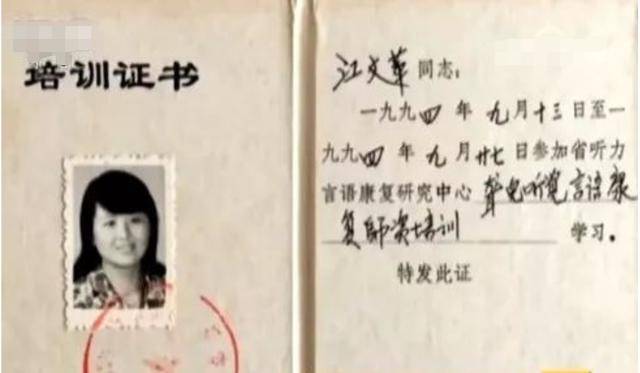 培训证书
江文革同志：
一九九四年九月十三日至一
九九四年九月廿七日参加省听力
言语康复研究中心聋儿听觉言语康
复師资培训学习。
特发此证